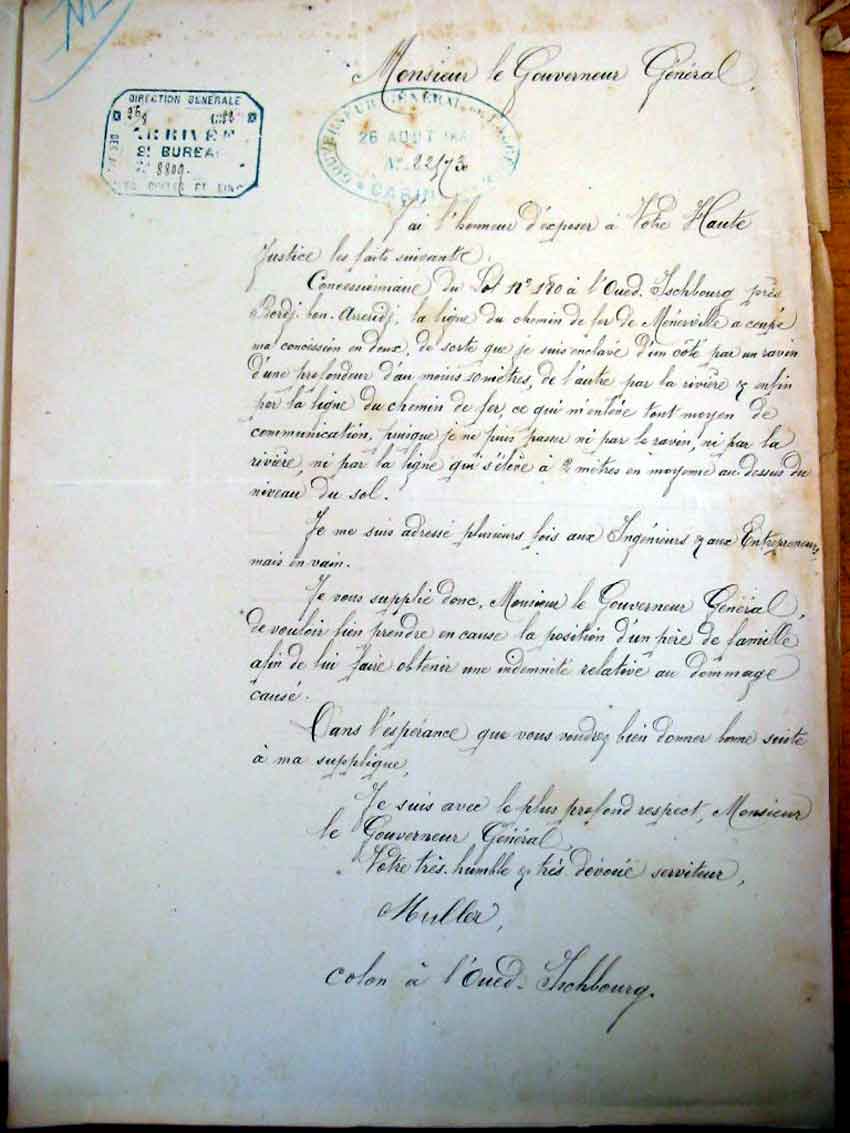 Monsieur le Gouverneur Général,
DIRECTION GÉNÉRALE
ARRIVÉE
BUREAU
8800
GOUVERNEUR GÉNÉRAL DE L'ALGÉRIE
26 AOUT
N°
CABINET
J'ai l'honneur d'exposer à Votre Haute
Justice les faits suivants:
Concessionnaire du Lot N° 180 à l'Oued-Ischbourg près
Bordj-bou-Arreridj, la ligne du chemin de fer de Ménerville a coupé
ma concession en deux, de sorte que je suis enclavé d'un côté par un ravin
d'une profondeur d'au moins 10 mètres, de l'autre par la rivière & enfin
par la ligne du chemin de fer, ce qui m'enlève tout moyen de
communication, puisque je ne puis passer ni par le ravin, ni par la
rivière, ni par la ligne qui s'élève à 2 mètres en moyenne au dessus du
niveau du sol.
Je me suis adressé plusieurs fois aux Ingénieurs & aux Entrepreneurs,
mais en vain.
Je vous supplie donc, Monsieur le Gouverneur Général,
de vouloir bien prendre en cause la position d'un père de famille
afin de lui faire obtenir une indemnité relative au dommage
causé.
Dans l'espérance que vous voudrez bien donner bonne suite
à ma supplique,
Je suis avec le plus profond respect, Monsieur
le Gouverneur Général,
Votre très-humble & très-dévoué serviteur,
Muller,
colon à l'Oued-Ischbourg.